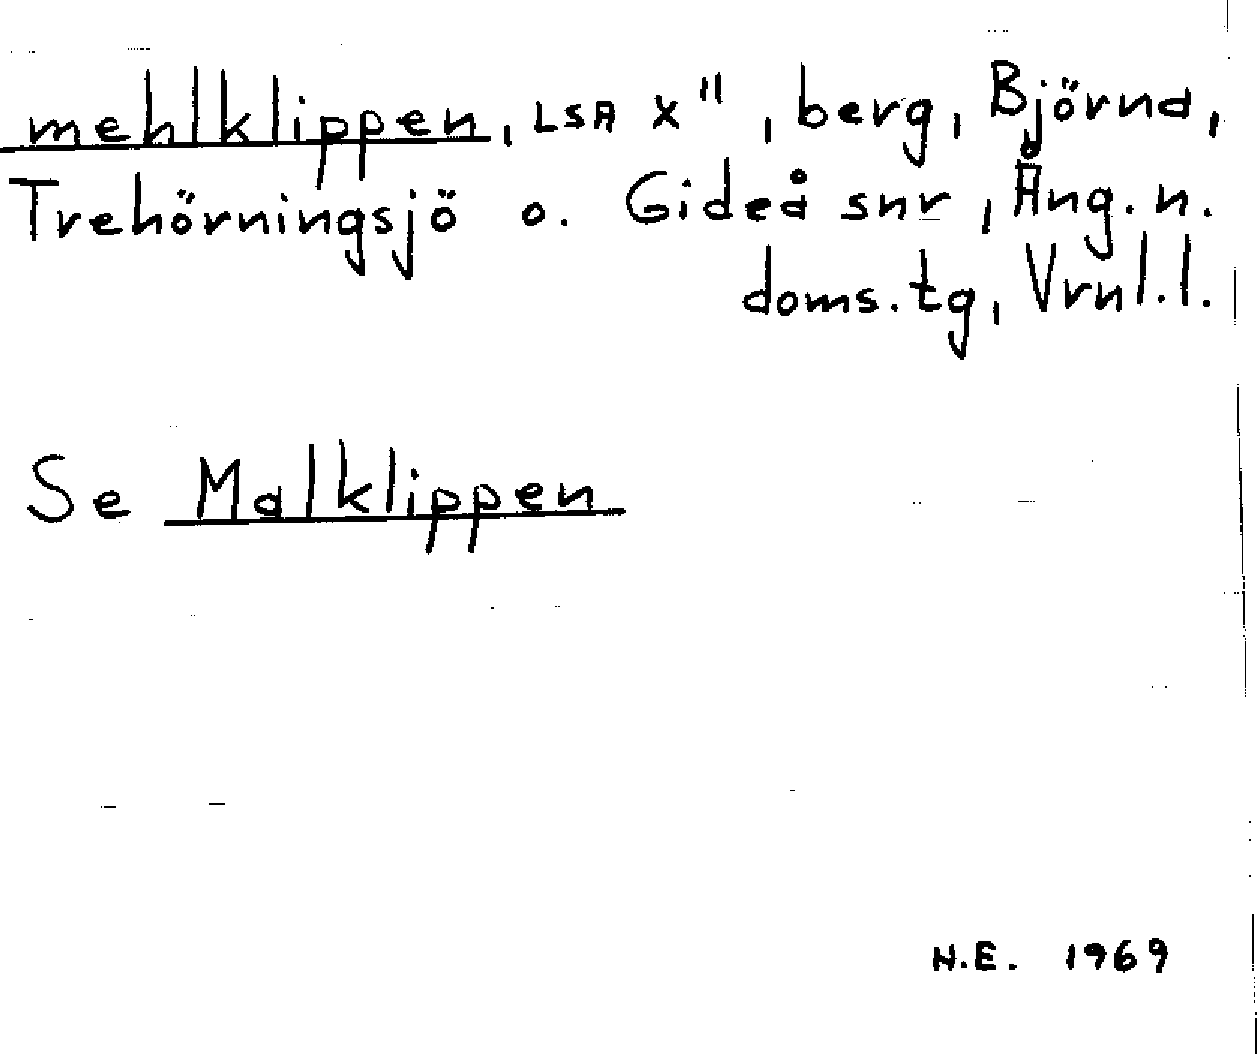 mehlklippen, LSA X", berg, Björna,
Trehörningsjö o. Gideå snr, Ång. n.
doms.tg, Vrnl.l.
Se Malklippen
H.E. 1969